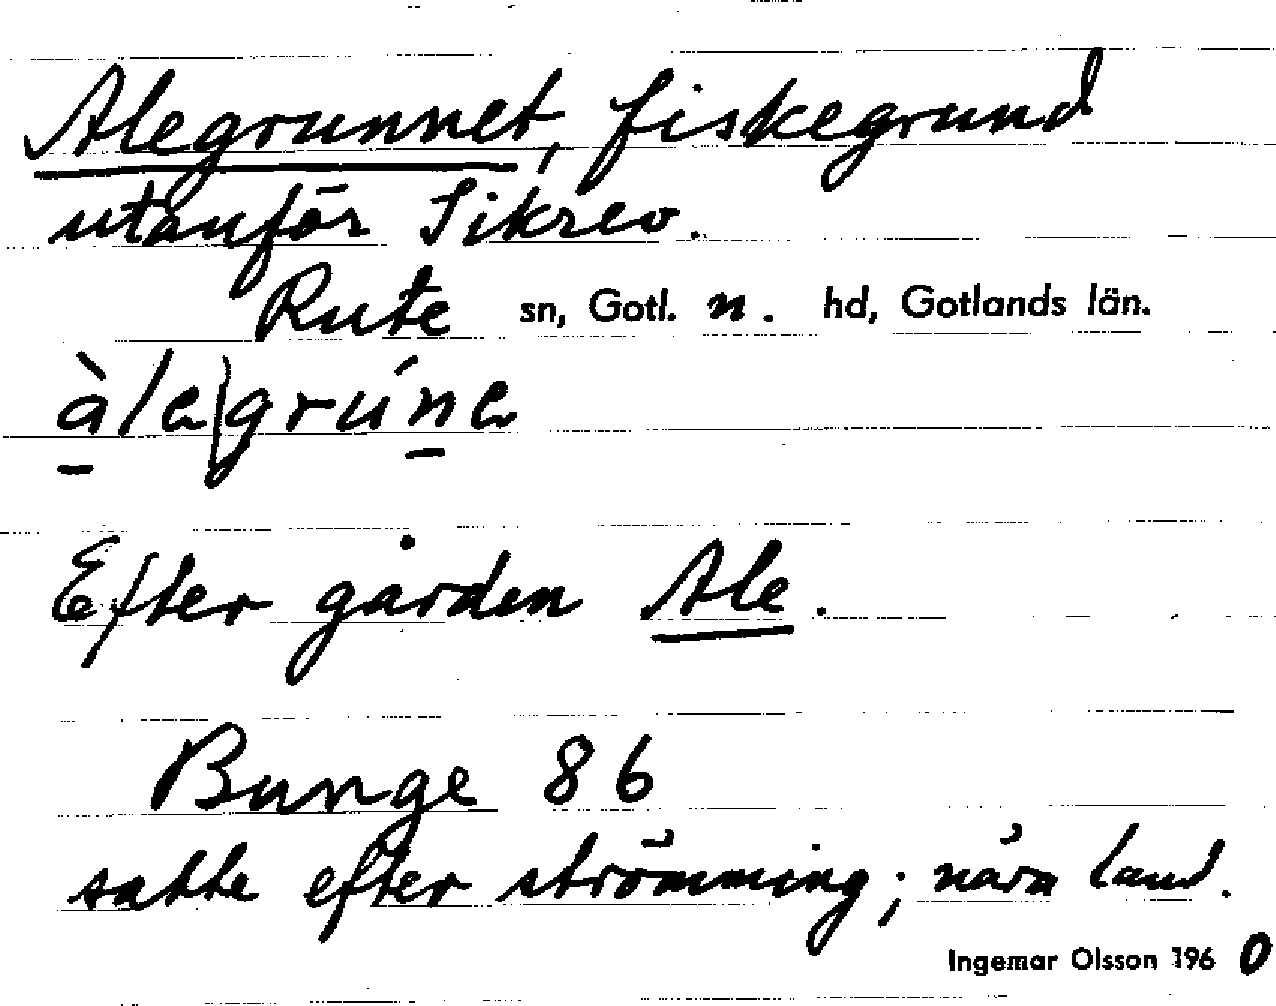 Alegrunnet, fiskegrund
utanför Sikrev.
Rute sn, Gotl. n. hd, Gotlands län.
àle)grúne
Efter gården Ale.
Bunge 86
satte efter strömming; nära land.
Ingemar Olsson 1960